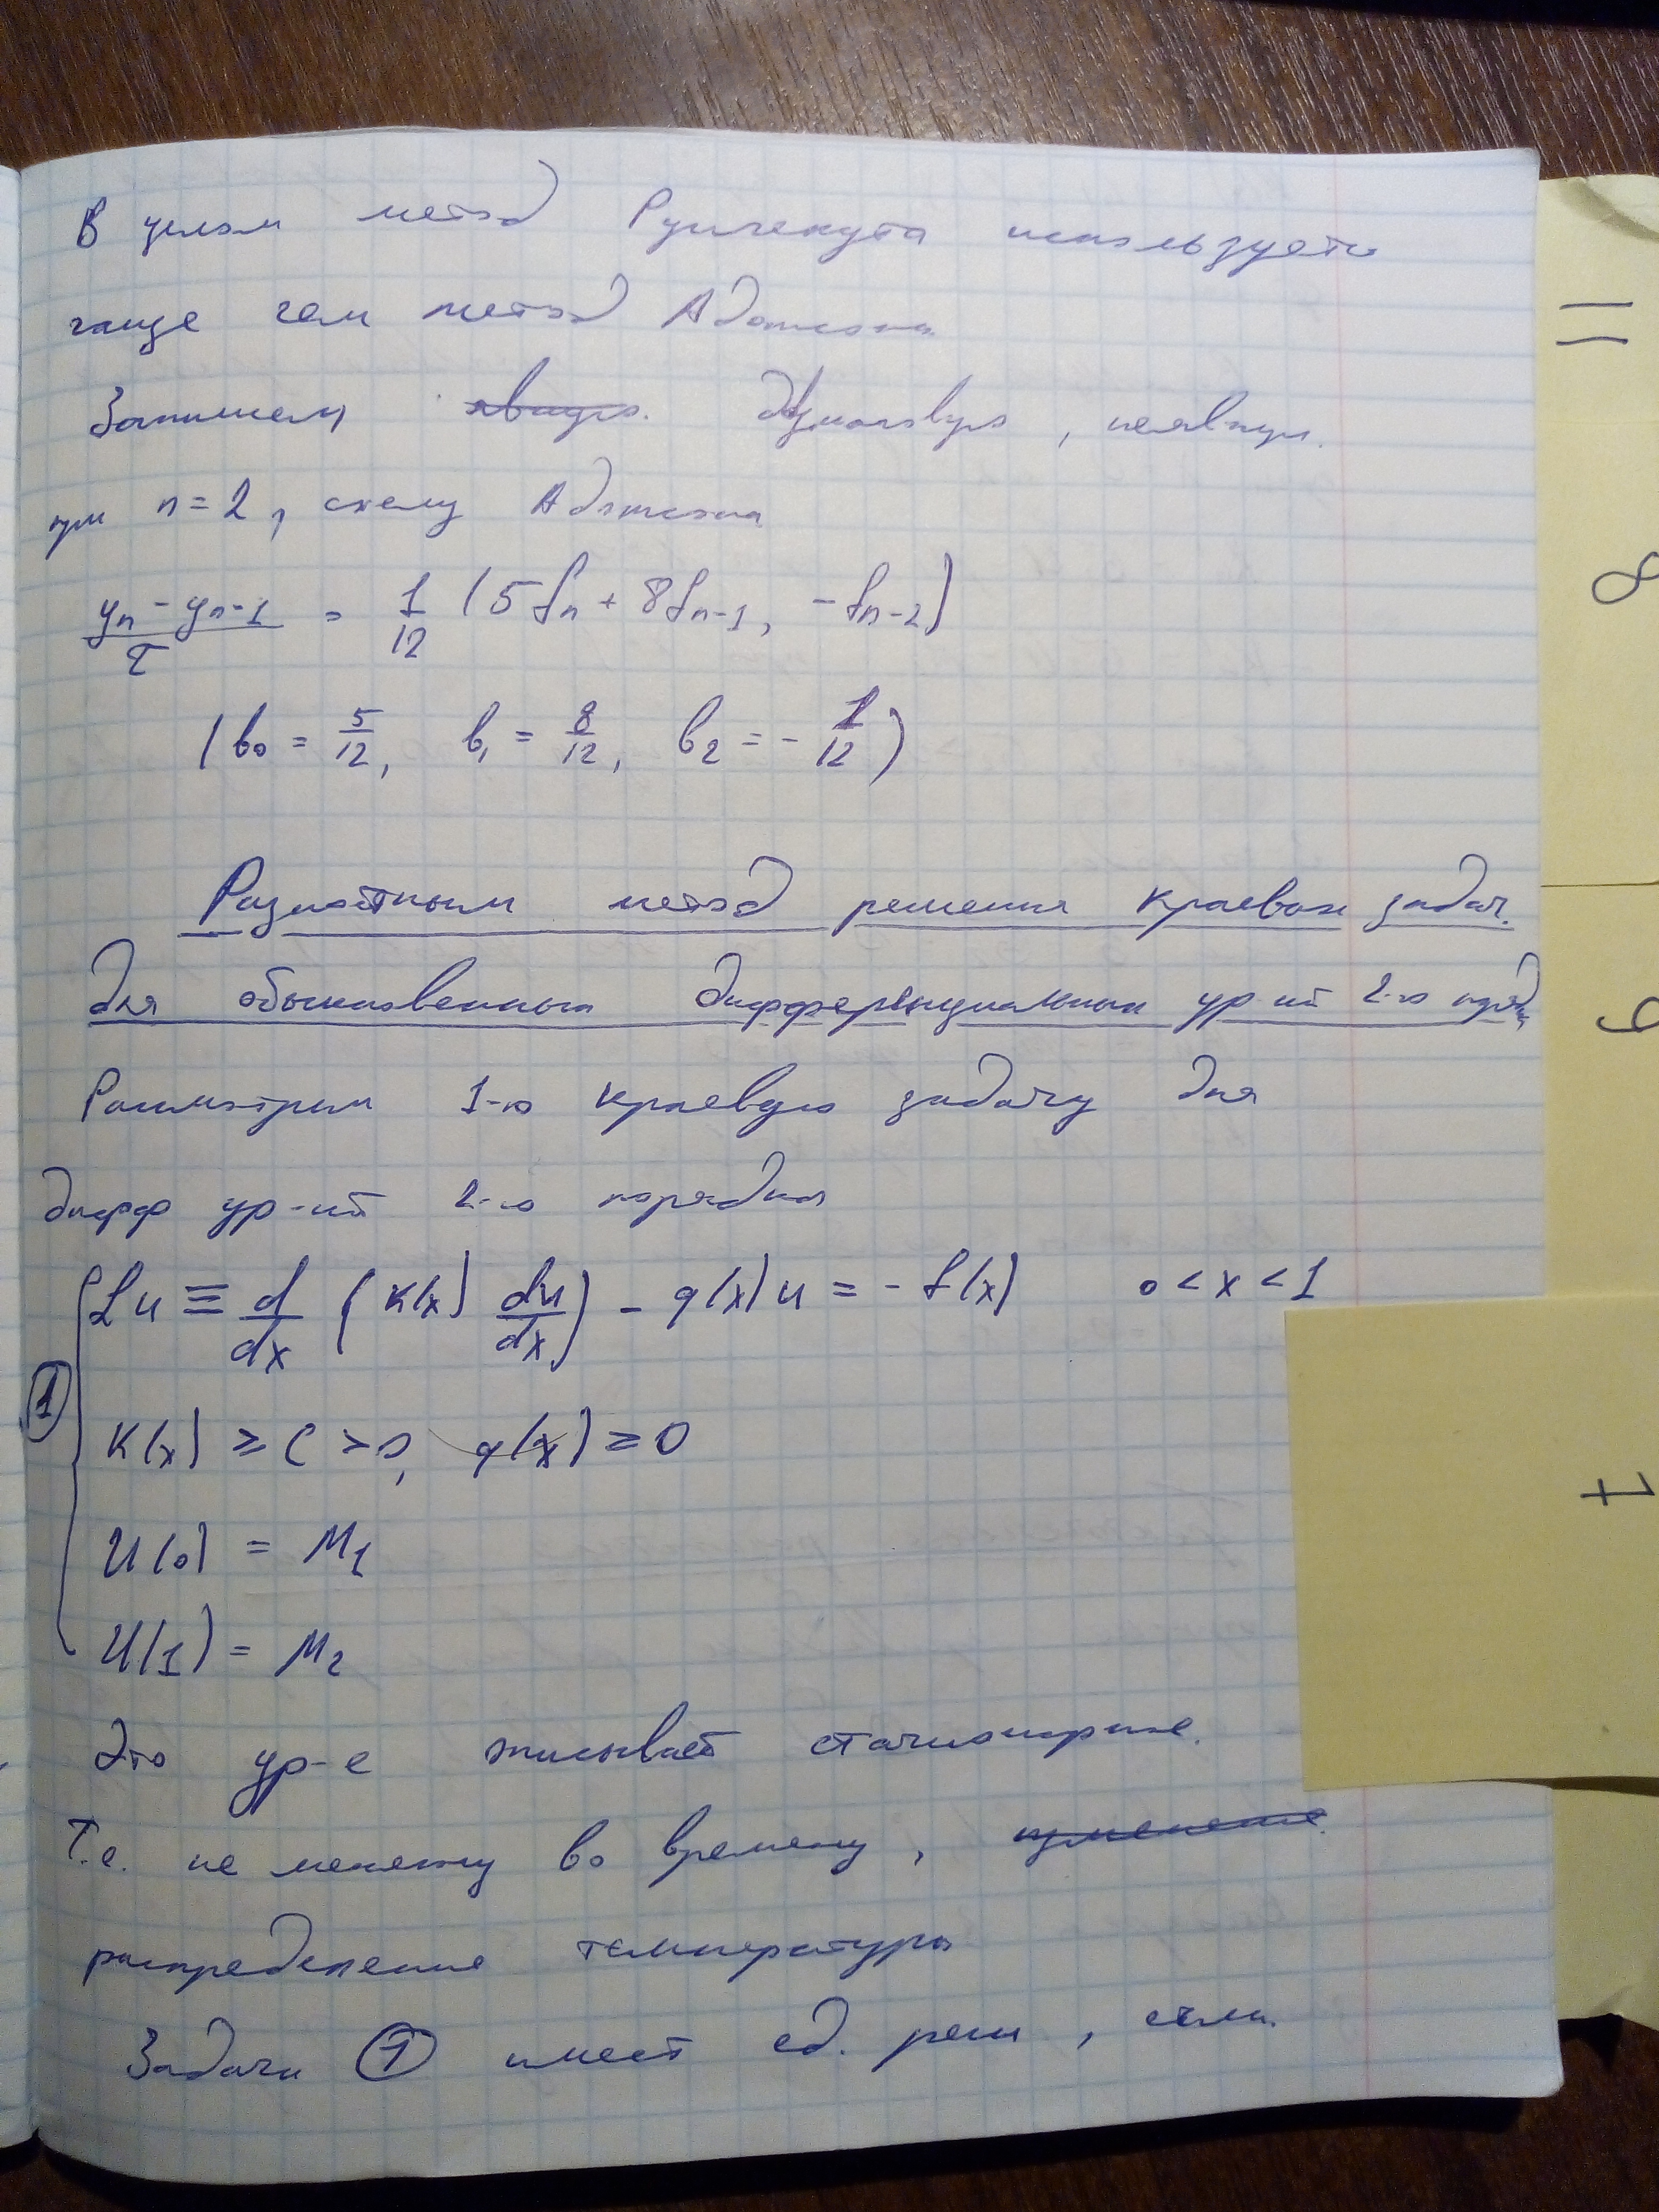 В целом метод Рунгекута используетс
чаще чем метод Адамса
Запишем явную двушаговую, неявную
при n = 2, схему Адамса
(yn - yn-1)/τ = 1/12 (5fn + 8fn-1, - fn-2)
(b0 = 5/12, b1 = 8/12, b2 = - 1/12)
Разностный метод решения краевых задач.
для обыкновенных дифференциальных ур-ий 2-го порядка
Рассмотрим 1-ю краевую задачу для
дифф ур-ий 2-го порядка
① Lu ≡ d/dx (K(x) du/dx) - q(x)u = - f(x) 0 < x < 1
K(x) ≥ C > 0, q(x) ≥ 0
U(0) = M1
U(1) = M2
Это ур-е описывает стационарное.
Т.е. не менему во времени, изменение
распределение температуры
Задача ① имеет ед. реш, если.
=
8
9
7